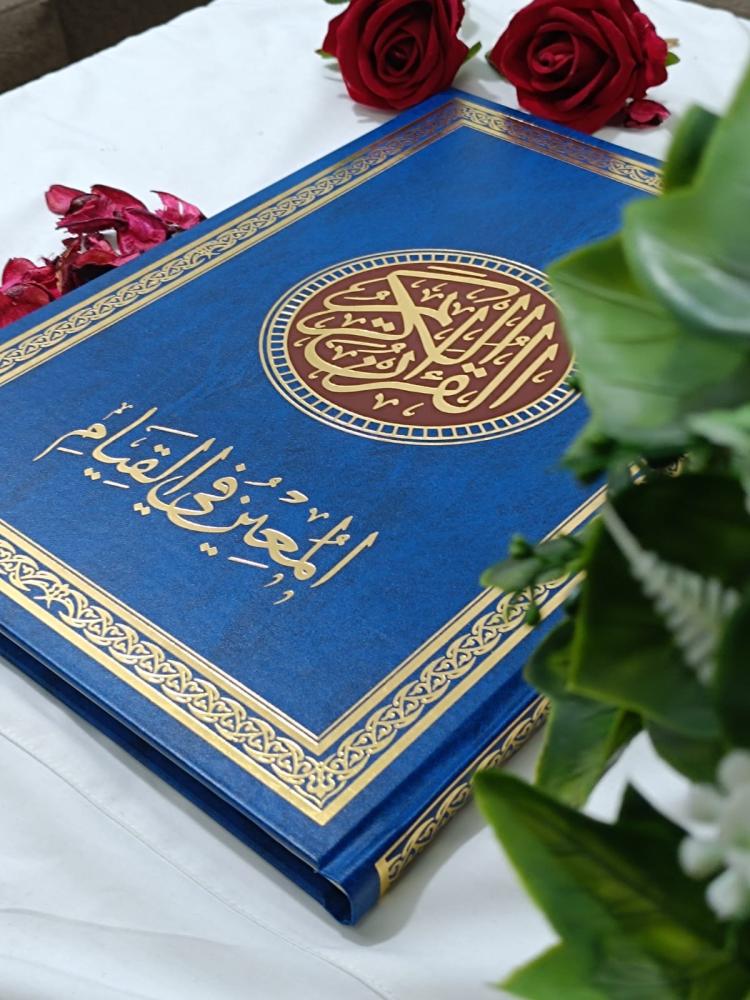 القرآن الكريم
المُعِين في القِيَامِ